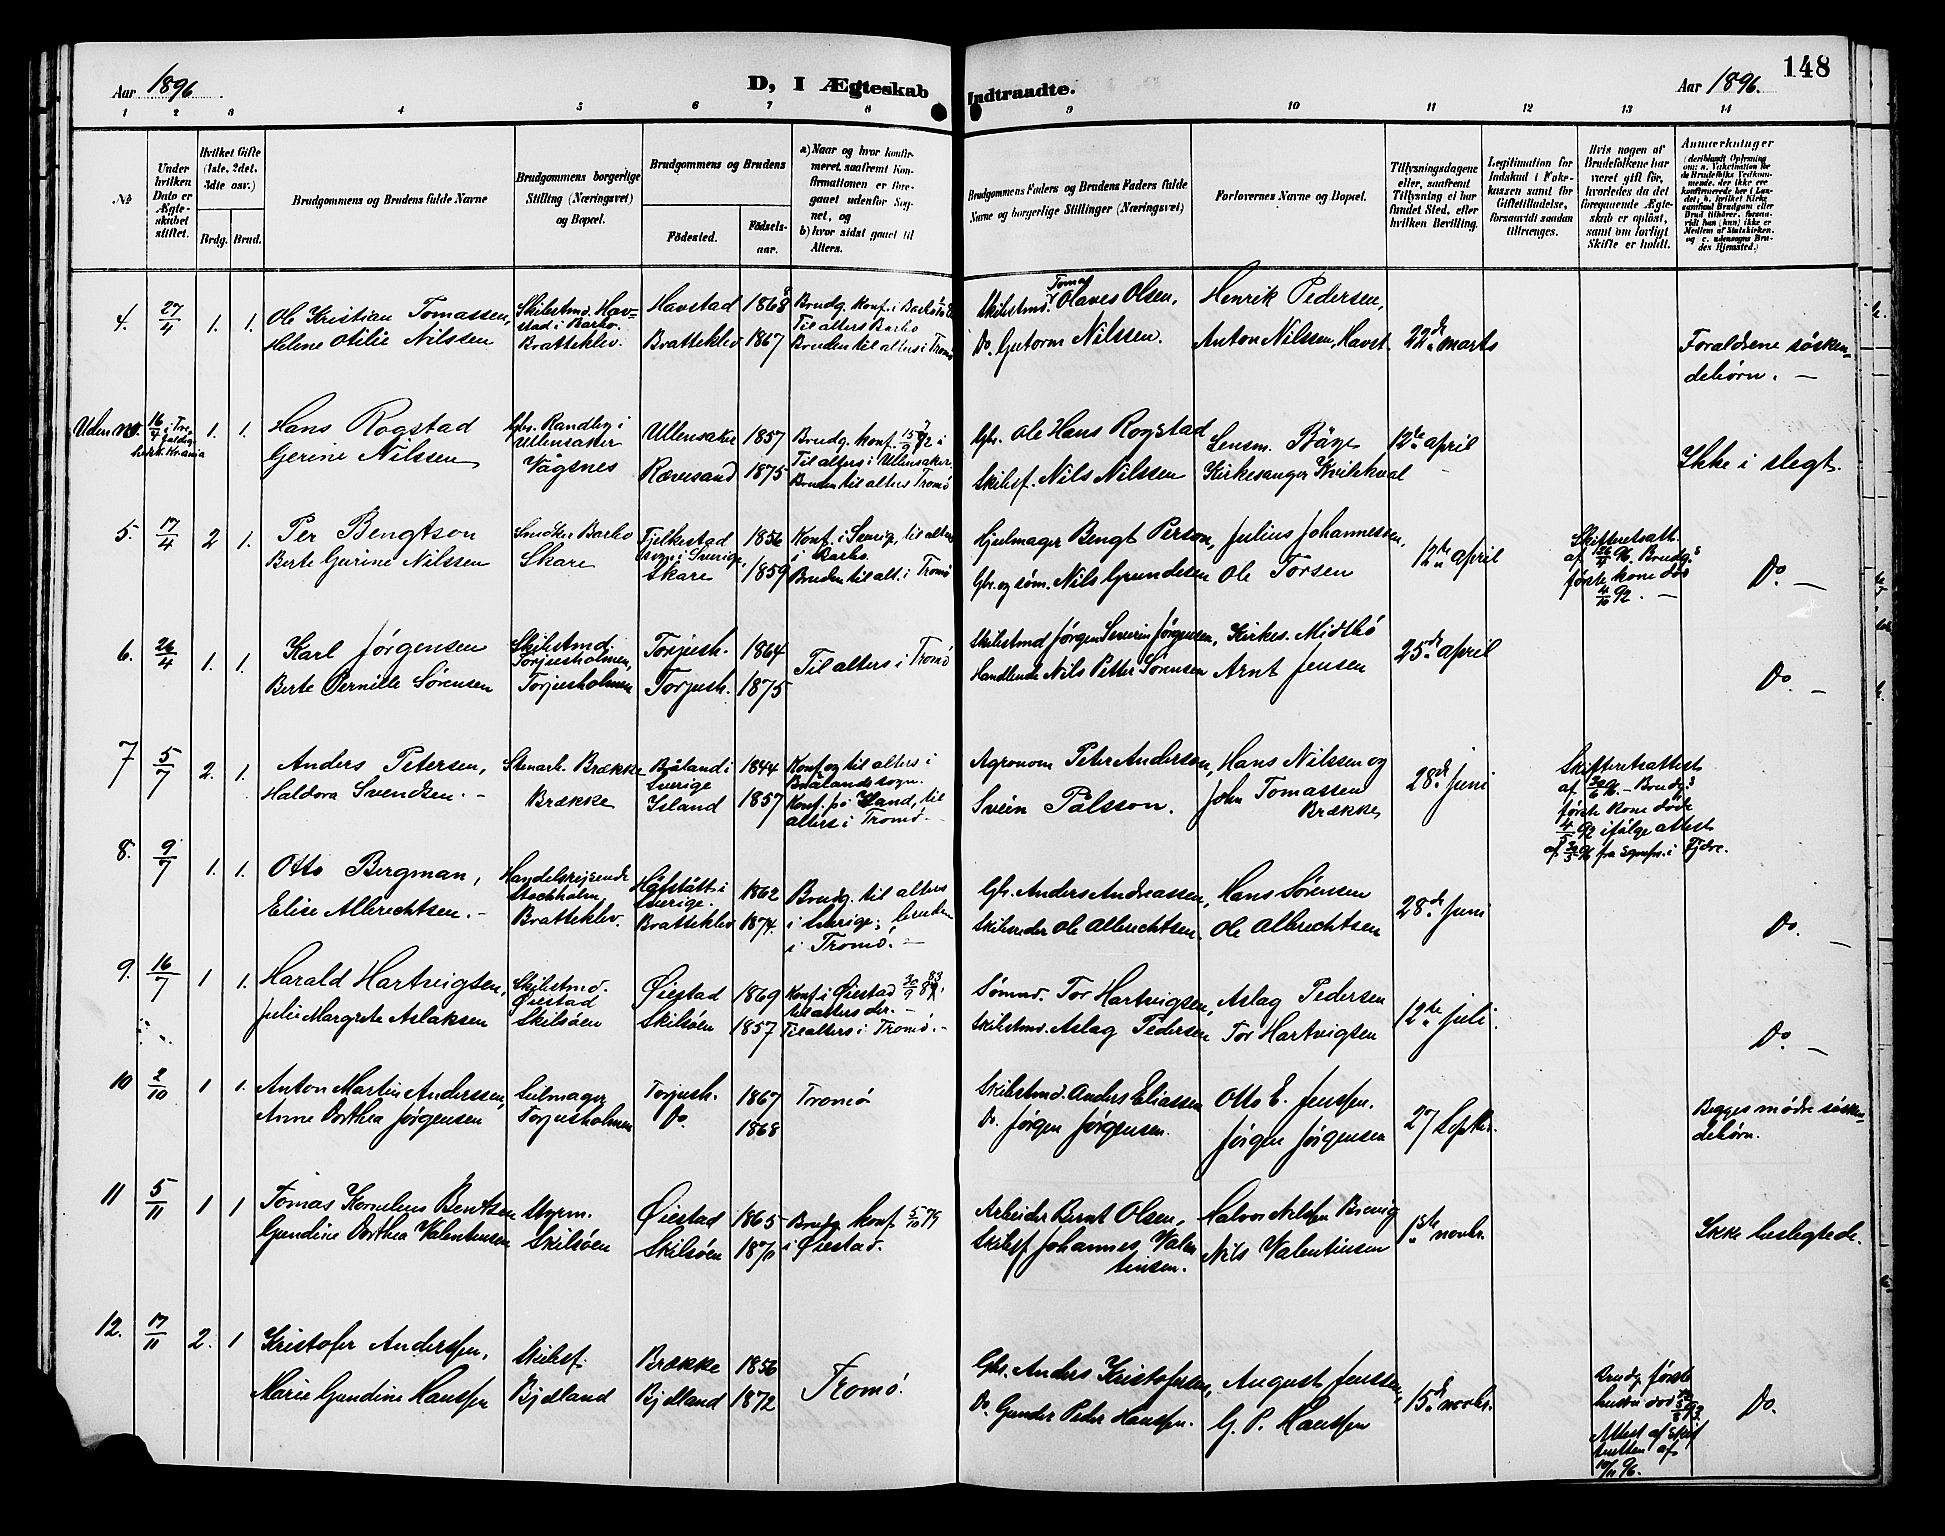 Aar 1896
D, I Ægteskab Indtraadte.
Aar 1896.
148
1 2 3 4 5 6 7 8 9 10 11 12 13 14
No
Under hvilken Dato er Ægteskabet stiftet.
Hvilket Gifte (1ste, 2det, 3die osv.)
Brdg. Brud.
Brudgommens og Brudens fulde Navne
Brudgommens borgerlige Stilling (Næringsvei) og Bopæl.
Brudgommens og Brudens
Fødested.
Fødselsaar.
a) Naar og hvor konfirmeret, saafremt Konfirmationen er foregaaet udenfor Sognet, og
b) hvor sidst gaaet til Alters.
Brudgommens Faders og Brudens Faders fulde Navne og borgerlige Stillinger (Næringsvei)
Forlovernes Navne og Bopæl.
Tillysningsdagene eller, saafremt Tillysning ei har fundet Sted, efter hvilken Bevilling.
Legitimation for Indskud i Enkekassen samt for Giftetilladelse, forsaavidt saadan tiltrænges.
Hvis nogen af Brudefolkene har været gift før, hvorledes da det foregaaende Ægteskab er opløst, samt om lovligt Skifte er holdt.
Anmærkninger
4. 27/4 1. 1.
Ole Kristian Tomassen,
Helene Otilie Nilssen
Skibstmd. Havstad i Barbo.
Bratteklev.
Havstad 1868
Bratteklev 1867
Brudg. konf. i Barbo
Til alters Barbo
Bruden til alters i Tromö
Skibstmd. Tomas Olaves Olsen,
Do. Gutorm Nilssen.
Henrik Pedersen,
Anton Nilssen, Havst.
22de marts
Forældrene søskendebørn. —
Uden no. 16/4 1. 1.
Hans Rogstad
Gerine Nilssen
Gbr. Randby i Ullensaker
Vågsnes
Ullensaker 1857
Rævesand 1875
Brudg. konf. 15/9 72 i
Til alters i Ullensaker.
Bruden til alters Tromö
Gbr. Ole Hans Rogstad
Skibsf. Nils Nilssen
Lensm. Bøge
Kirkesanger Kvilekval
12te april
Ikke i slegt.
5. 17/4 2 1.
Per Bengtson
Berte Gurine Nilssen
Snedker Barbo
Skare
Fjelkestad sogn i Sverige, 1856
Skare 1859
Konf. i Sverig, til alters i Barbo
Bruden til alt. i Tromö
Hjulmager Bengt Person,
Gbr. og søm. Nils Gundesen
Julius Johannessen,
Ole Torsen
12te april
Skifteretsatt. af 96. Brudg.s første kone død 4/10 92. —
Do. —
6. 26/4 1. 1.
Karl Jørgensen
Berte Pernille Sørensen
Skibstmd. Torjusholmen,
Torjusholmen
Torjush. 1864
Torjush. 1875
Til alters i Tromö
Skibstmd Jørgen Severin Jørgensen,
Handlende Nils Petter Sørensen
Kirkes. Midtbö
Arnt Jensen
25de april
Do. —
7 5/7 2. 1.
Anders Petersen,
Haldora Svendsen. —
Stenarb. Brække
Brække
Bråland i Sverige 1844
Island 1857
Konf. og til alters i Brålands sogn.
Konf. på Island, til alters i Tromö. —
Agronom Peter Anderson,
Svein Pålsson.
Hans Nilssen og
John Tomassen Brække
28de Juni
Skifteretsattest af 30/6 96. — Brudg.s første kone døde 4/5 92 ifølge attest af 96 fra sognepr. i Fjære.
8. 9/7 1. 1.
Otto Bergman,
Elise Albrechtsen. —
Handelsreisende Stockholm,
Bratteklev.
Håfstätt i Sverige. 1862
Bratteklev 1874.
Brudg. til alters i Sverige; bruden i Tromö. —
Gbr. Anders Andreassen,
Skibsreder Ole Albrechtsen.
Hans Sørensen
Ole Albrechtsen
28de Juni
Do. —
9. 16/7 1 1.
Harald Hartvigsen,
Julie Margrete Aslaksen
Skibstmd. Øiestad
Skilsöen
Øiestad 1869
Skilsöen 1857
Konf. i Øiestad 30/9 83. til alters der. —
Til alters i Tromö. —
Sømnd. Tor Hartvigsen,
Skibstmd. Aslag Pedersen
Aslag Pedersen
Tor Hartvigsen
12te juli.
Do. —
10 2/10 1 1.
Anton Martin Anderssen,
Anne Dorthea Jørgensen
Seilmager
Torjusholmen
Torjush. 1867
Do. 1868
Tromö
Skibstmd. Anders Eliassen
Do. Jørgen Jørgensen.
Otto E. Jenssen.
Jørgen Jørgensen
27 Septbr.
Begges mødre søskendebørn.
11 5/11 1 1
Tomas Kornelius Bentsen
Gundine Dorthea Valentinsen
Styrm.
Skilsöen
Øiestad 1865
Skilsöen 1870
Brudg. konf. 5/10 79 i Øiestad.
Arbeider Bernt Olsen,
Skibsf Johannes Valentinsen.
Halvor Nilsen
Nils Valentinsen
1ste novbr.
Ikke beslegtede.
12. 17/11 2. 1
Kristofer Anderssen,
Marie Gundine Hanssen
Skibsf.
Bjelland
Brække 1856
Bjelland 1872
Tromö.
Gbr. Anders Kristofersen,
Do. Gunder Peder Hanssen.
August Jenssen,
G. P. Hanssen
15de novbr.
Brudg. første hustru død 93. Attest af skifteretten af 10/11 96.
Do.